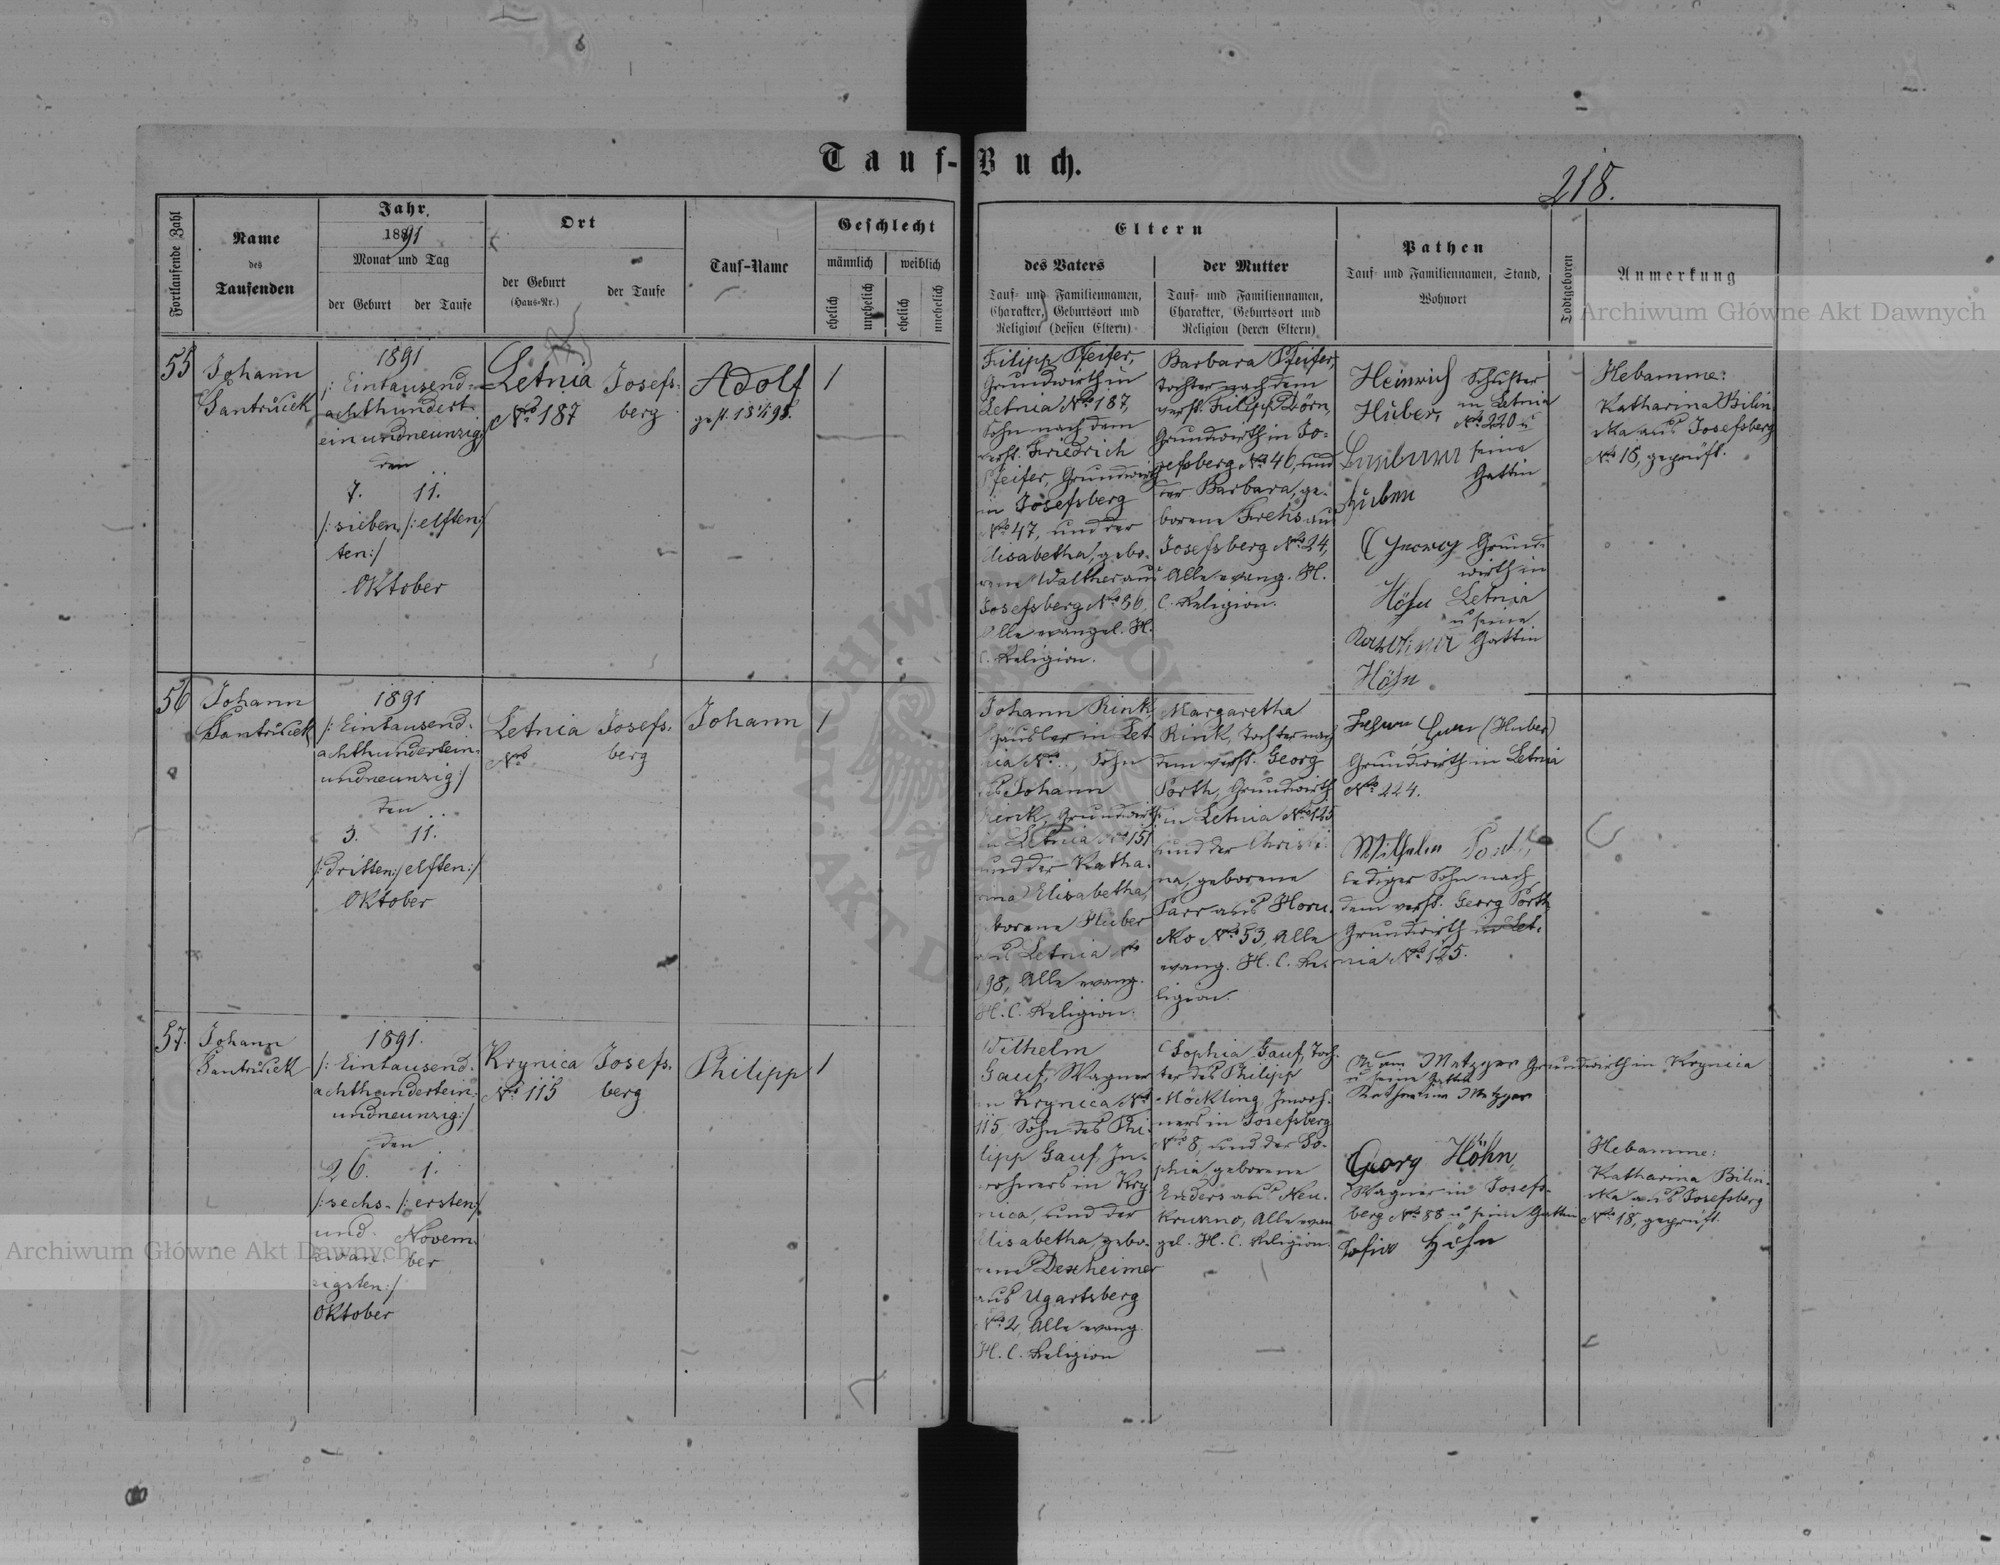 Tauf-Buch.
218.
Fortlaufende Zahl
Name
des
Taufenden
Jahr.
1891
Monat und Tag
der Geburt
der Taufe
Ort
der Geburt
(Haus-Nr.)
der Taufe
Tauf-Name
Geschlecht
männlich
weiblich
ehelich
unehelich
ehelich
unehelich
Eltern
des Vaters
Tauf- und Familiennamen,
Charakter, Geburtsort und
Religion (dessen Eltern)
der Mutter
Tauf- und Familiennamen,
Charakter, Geburtsort und
Religion (deren Eltern)
Pathen
Tauf- und Familiennamen, Stand,
Wohnort
Todtgeboren
Anmerkung
55
Johann
1891
/: Eintausend-
achthundert-
einundneunzig
den
7. 11.
/: sieben /: elften :/
ten :/
Oktober
Letnia
No 187
Josefs-
berg
Adolf
1
Filipp Pfeifer,
Grundwirth in
Letnia No 187,
Sohn nach dem
verst. Friedrich
Pfeifer, Grundwirth
in Josefsberg
No 47, und der
Elisabetha, gebo-
rene Walther aus
Josefsberg No 86,
Alle evangel. H.
C. Religion.
Barbara Pfeifer,
Tochter nach dem
verst. Filipp Dörn,
Grundwirth in Jo-
sefsberg No 46, und
der Barbara, ge-
borene Frehs aus
Josefsberg No 24,
Alle evang. H.
C. Religion.
Heinrich Schuster
Huber, in Letnia
No 220 u
seine
Gattin
Huber
Georg Grund-
wirth in
Höhn Letnia
u seine
Gattin
Höhn
Hebamme:
Katharina Bilin-
ska aus Josefsberg
No 18, geprüft.
56
Johann
1891
/: Eintausend-
achthundertein-
undneunzig :/
den
3. 11.
/: dritten :/ elften :/
Oktober
Letnia
No
Josefs-
berg
Johann
1
Johann Rink
Häusler in Let-
nia No .., Sohn
des Johann
Rink, Grundwirth
in Letnia No 151
und der Katha-
rina Elisabetha,
geborene Huber
aus Letnia No
198, Alle evang.
H. C. Religion.
Margaretha
Rink, Tochter nach
dem verst. Georg
Porth, Grundwirth
in Letnia No 125
und der Christi-
na, geborene
Parr aus Horu-
cko No 53, Alle
evang. H. C. Re-
ligion.
(Huber)
Grundwirth in Letnia
No 224.
Wilhelm
lediger Sohn nach
dem verst. Georg Porth
Grundwirth in Let-
nia No 125.
57.
Johann
1891.
/: Eintausend-
achthundertein-
undneunzig :/
den
26. 1.
/: sechs- /: ersten :/
und- Novem-
zwan- ber
zigsten :/
Oktober
Krynica
No 115
Josefs-
berg
Philipp
1
Wilhelm
Gauf, Wagner
in Krynica No
115 Sohn des Phi-
lipp Gauf, In-
wohners in Kry-
nica, und der
Elisabetha, gebo-
rene Dexheimer
aus Ugartsberg
No 2, Alle evang.
H. C. Religion
Sophia Gauf, Toch-
ter des Philipp
Möckling, Inwoh-
ners in Josefsberg
No 8, und der So-
phia, geborene
Enders aus Neu-
Kruzno, Alle evan-
gel. H. C. Religion.
Metzger Grundwirth in Krynica
u seine Gattin
Katharina Metzger
Georg Höhn,
Wagner in Josefs-
berg No 88 u seine Gattin
Sofia Höhn
Hebamme:
Katharina Bilin-
ska aus Josefsberg
No 18, geprüft.
Archiwum Główne Akt Dawnych
Archiwum Główne Akt Dawnych